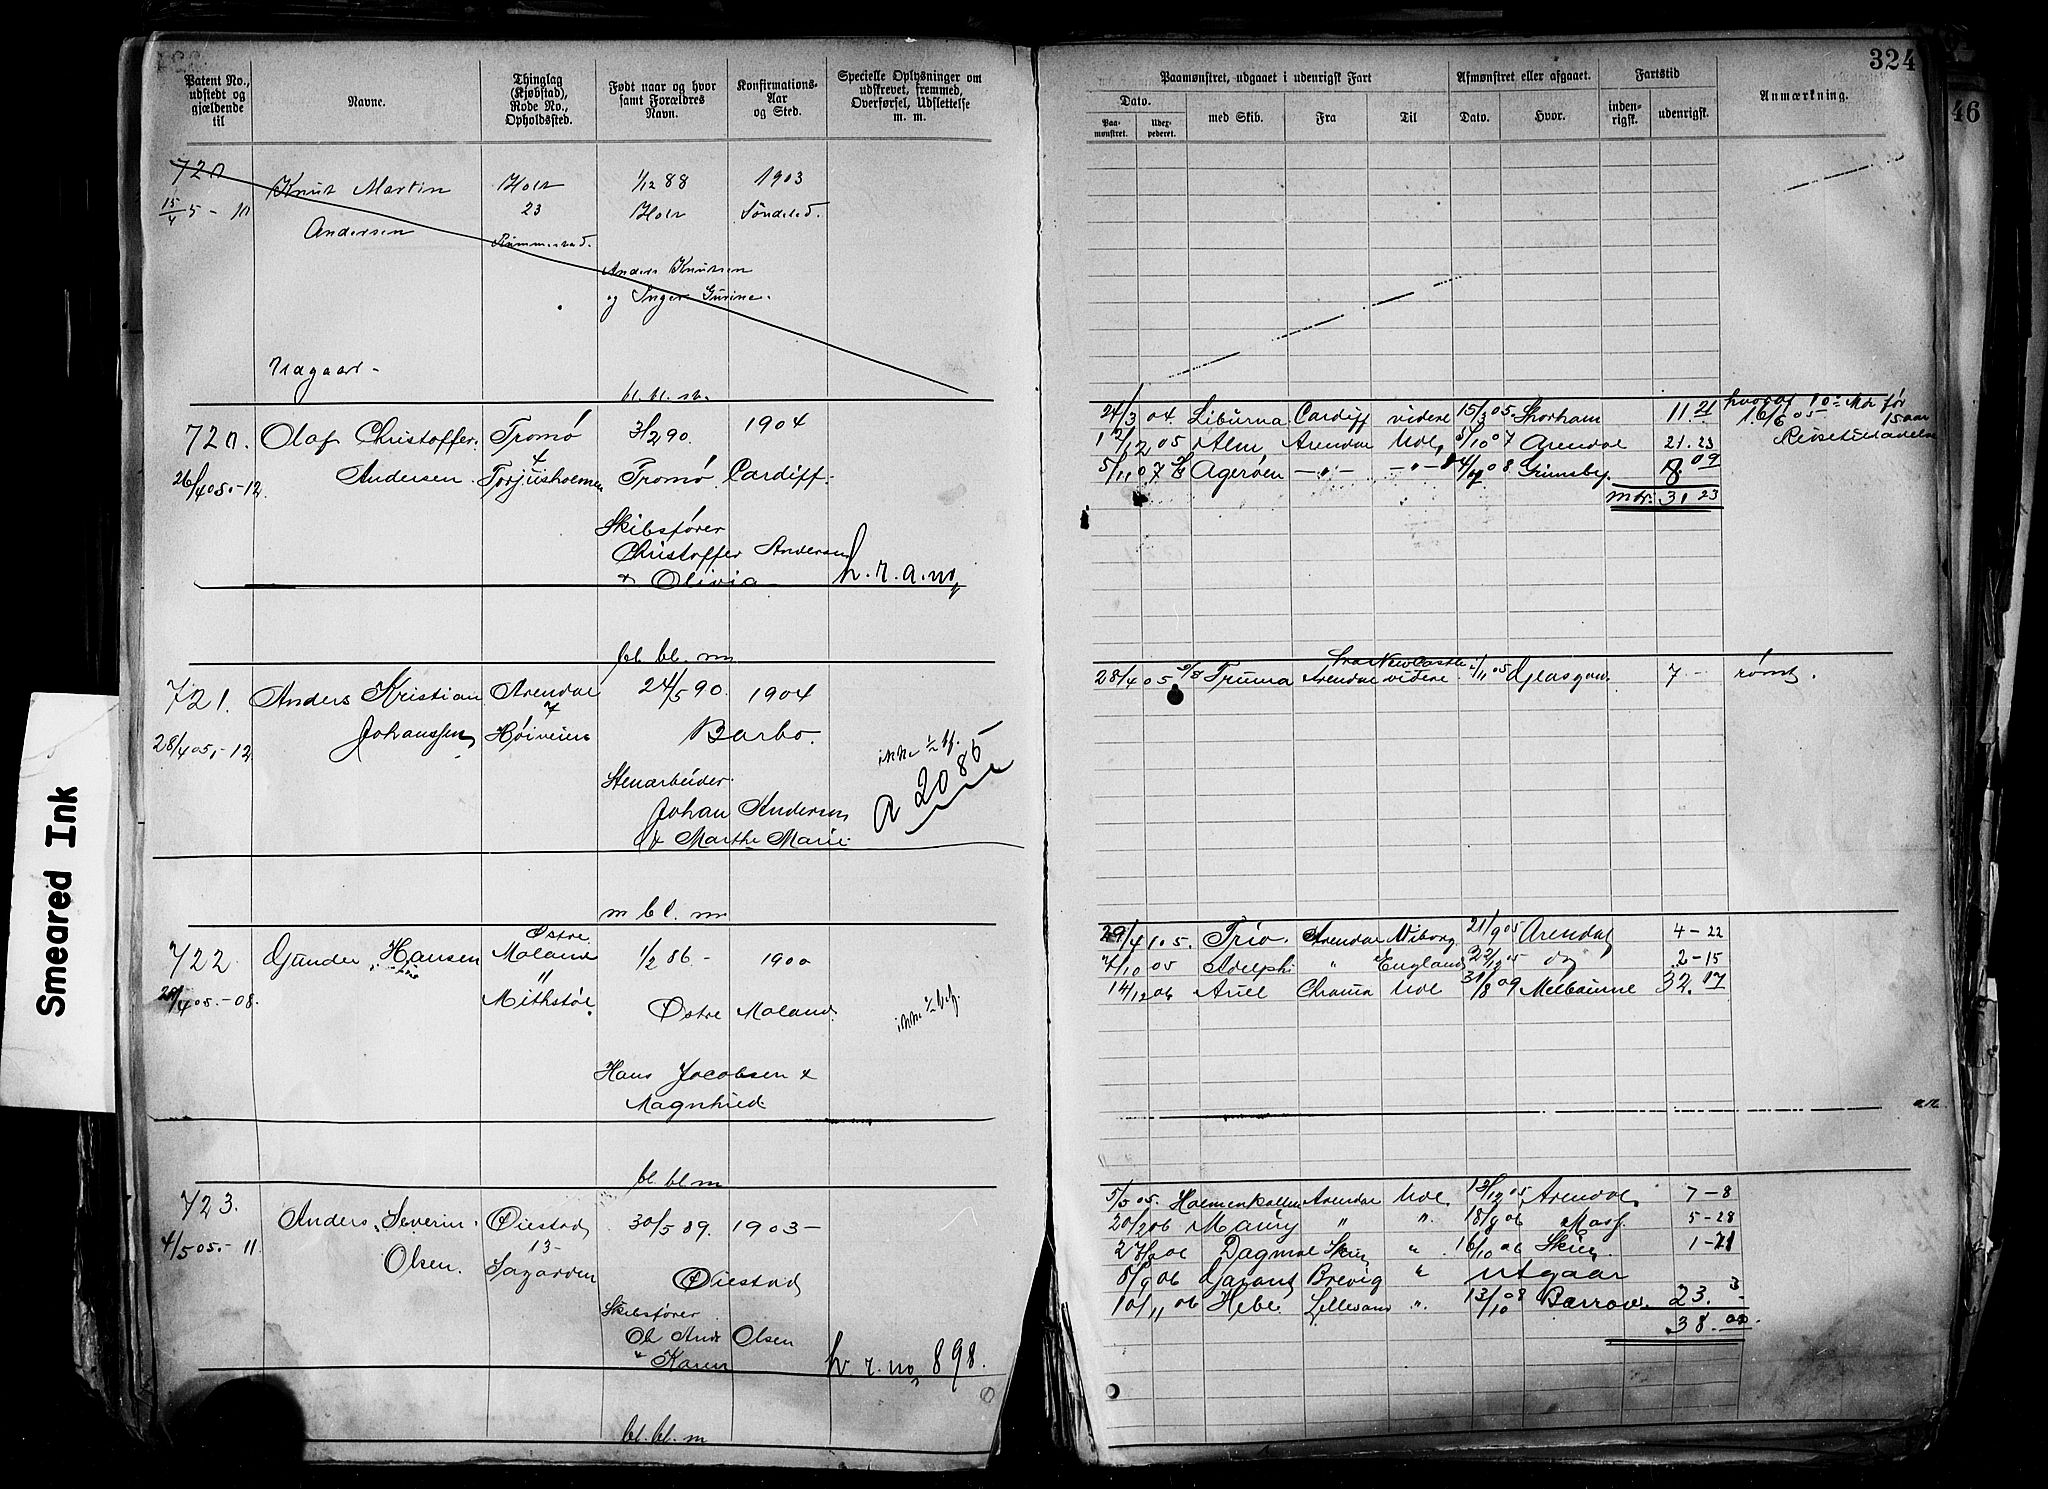 324
46
Smeared Ink
Patent No., udstedt og gjældende til
Navne.
Thinglag (Kjøbstad), Rode No., Opholdssted.
Født naar og hvor samt Forældres Navn.
Konfirmations-Aar og Sted.
Specielle Oplysninger om udskrevet, fremmed, Overførsel, Udslettelse m. m.
Paamønstret, udgaaet i udenrigsk Fart
Afmønstret eller afgaaet.
Fartstid
Anmærkning.
Dato.
Paa-mønstret.
Udex-pederet.
med Skib.
Fra
Til
Dato.
Hvor.
inden-rigsk.
udenrigsk.
720
Knut Martin
Holt
1/12 88
1903
15/4 5 - 10
23
Holt
Søndeled.
Andersen
Anders Knutsen
og Inger Gurine.
bl. bl. m.
720.
Olaf Christoffer
Tromø
3/2 90.
1904
24/3 04. Liburna Cardiff videre 15/3 05. 11.21
4
12/12 05 Alm Arendal Udl. 10 07 Arendal 21.23
26/4 05.-12.
Andersen.
Torjusholmen
Tromø.
Cardiff.
5/11 07 Agerøen -"- -"- 08 Grimsby. 8.09
mdr. 31 23
Skibsfører
Christoffer Andersen
& Olivia
h. r. a. no,
bl. bl. m
721.
Anders Kristian
Arendal
24/5 90.
1904
28/4 05 Truma Arendal videre 11 05 Glasgow. 7 - rømt.
4
28/4 05.-12.
Johanssen
Høiveien
Barbo.
Stenarbeider
a 2085
Johan Andersen
& Marthe Marie.
m bl. m
722
Gunder Hansen
Østre Moland
1/2 86 -
1900
29/4 05. Trio. Arendal Wiborg 21/9 05 Arendal 4 - 22
"
10 05 Adelphi " England 22/12 05 do 2 - 15
28/4 05.-08.
Østre Moland.
14/12 06 Ariel Chrania Udl 31/8 09 Melbourne 32.17
Hans Jacobsen &
Magnhild
bl. bl. m
723.
Anders Severin
Øiestad
30/5 89.
1903 -
5/5 05. Holmenkollen Arendal Udl 13/12 05 Arendal 7 - 8
4/5 05.-11.
Olsen.
13 -
20/2 06 " ". 18/9 06 5 - 28
Øiestad
06 Dagmar Skien " 16/10 06 Skien 1 - 21
8/9 06 Garant Brevig " utgaar
Skibsfører
10/11 06 Hebe Lillesand ". 13/10 08 Barrow. 23. 3
Ol Andr Olsen
38.
" Karen
h. r. no, 898.
bl. bl. m